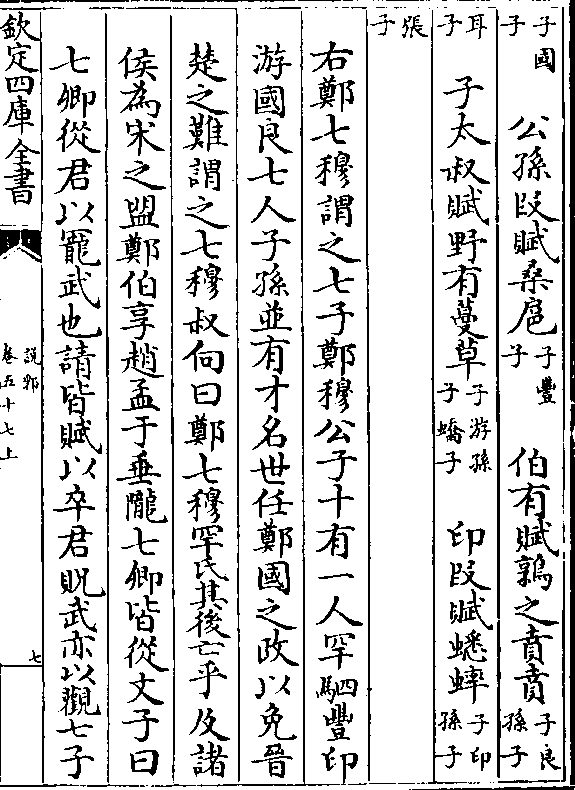 子國子 公孫段賦桑扈 子豐子 伯有賦鶉之賁賁 子良孫子
耳子 子太叔賦野有蔓草 子游孫子蟜子 印段賦蟋蟀 子印孫子
張子
右鄭七穆謂之七子鄭穆公子十有一人罕駟豐印
游國良七人子孫並有才名世任鄭國之政以免晉
楚之難謂之七穆叔向曰鄭七穆罕氏其後亡乎及諸
侯為宋之盟鄭伯享趙孟于垂隴七卿皆從文子曰
七卿從君以寵武也請皆賦以卒君貺武亦以觀七子
欽定四庫全書
說郛
卷五十七上
七